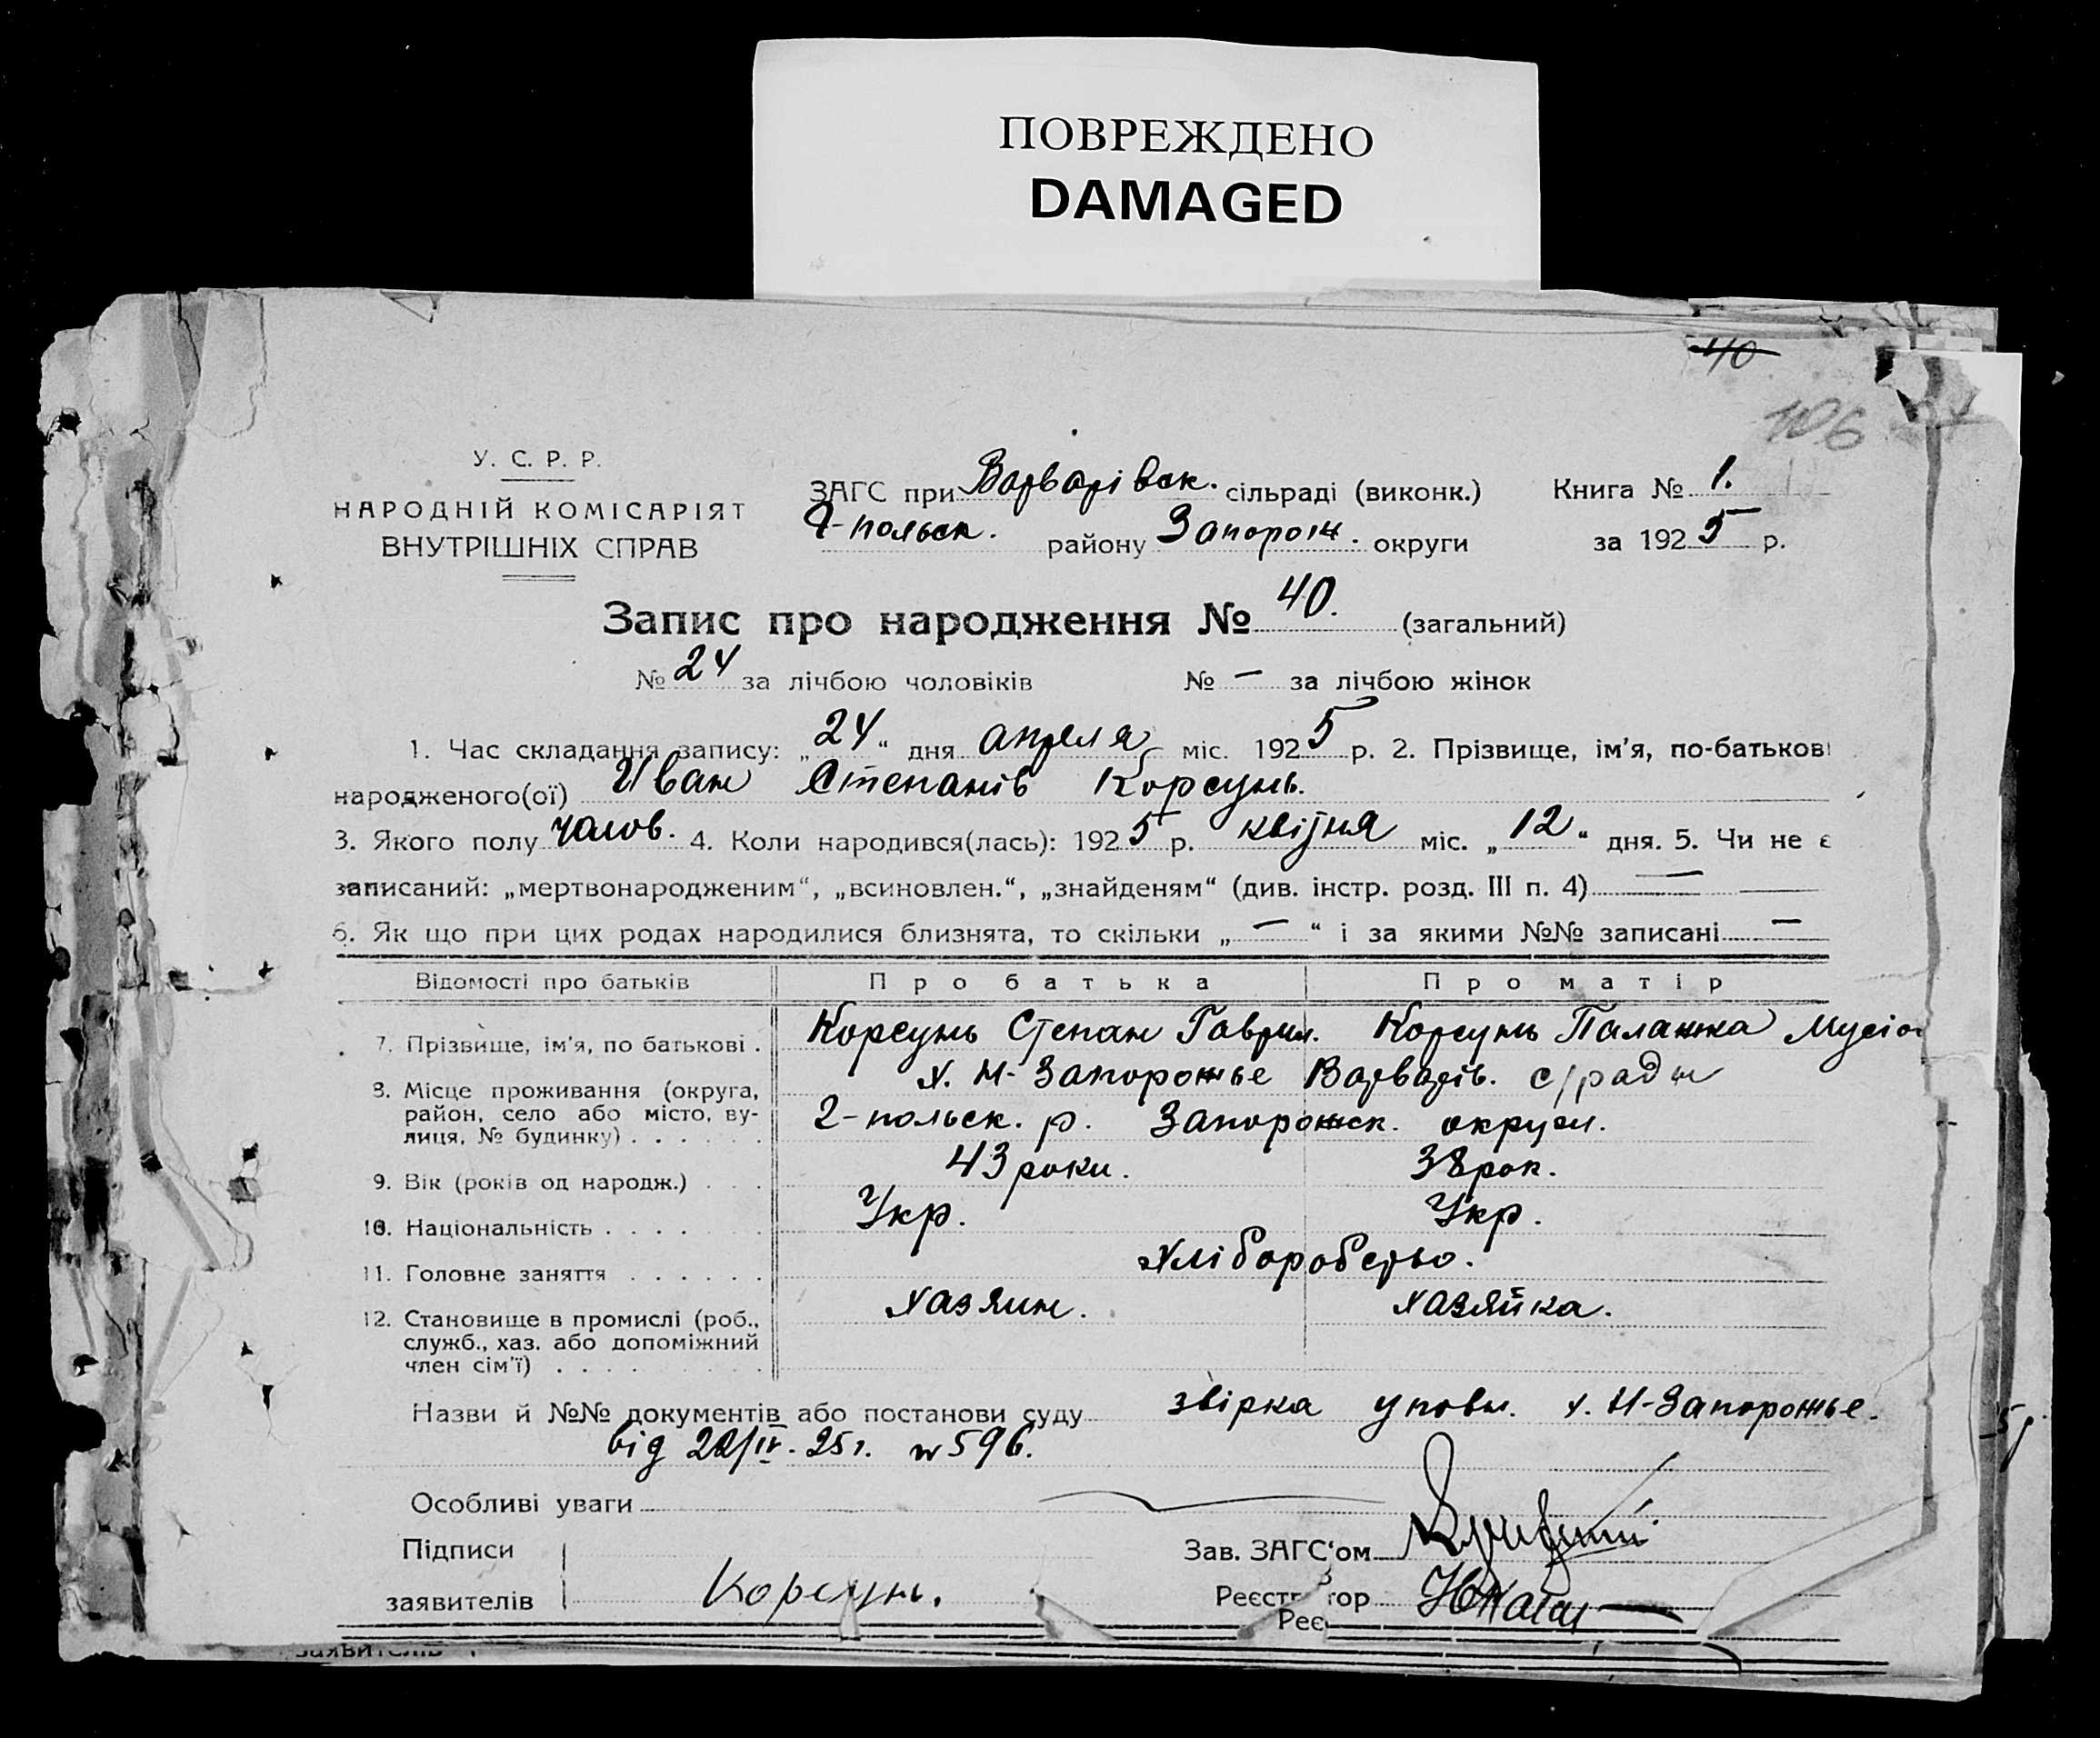 ПОВРЕЖДЕНО
DAMAGED
40
106
У. С. Р. Р.
НАРОДНІЙ КОМІСАРІЯТ
ВНУТРІШНІХ СПРАВ
ЗАГС при Варварівск. сільраді (виконк.) Книга № 1.
г-польск. району Запорож. округи за 1925 р.
Запис про народження № 40. (загальний)
№ 24 за лічбою чоловіків № — за лічбою жінок
1. Час складання запису: „24“ дня апреля міс. 1925 р. 2. Прізвище, ім'я, по-батькові
народженого(ої) Иван Степанів Корсунь.
3. Якого полу чолов. 4. Коли народився(лась): 1925 р. квітня міс. „12“ дня. 5. Чи не є
записаний: „мертвонародженим“, „всиновлен.“, „знайденям“ (див. інстр. розд. III п. 4) —
6. Як що при цих родах народилися близнята, то скільки „—“ і за якими №№ записані —
Відомості про батьків Про батька Про матір
7. Прізвище, ім'я, по батькові . Корсунь Степан Гаврил. Корсунь Палажка Мусіо
8. Місце проживання (округа, х. Н-Запорожье Варварів. с/ради
район, село або місто, ву- г-польск. р. Запорожск. округи.
лиця, № будинку) . . . . . .
9. Вік (років од народж.) . . . 43 роки. 38 рок.
10. Національність . . . . . . . Укр. Укр.
11. Головне заняття . . . . . . Хліборобство.
12. Становище в промислі (роб., хазяин. хазяйка.
служб., хаз. або допоміжний
член сім'ї) . . . .
Назви й №№ документів або постанови суду звірка уповн. х. Н-Запорожье.
від 22/IV-25 г. № 596.
Особливі уваги
Підписи Зав. ЗАГС'ом
заявителів Корсунь. Реєстратор
Реє
заявителів